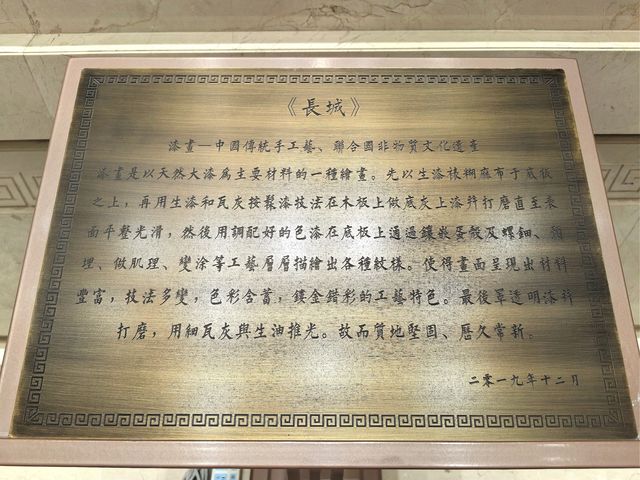 《長城》
漆畫—中國傳統手工藝、聯合國非物質文化遺產
漆畫是以天然大漆為主要材料的一種繪畫。先以生漆裱糊麻布于底板
之上，再用生漆和瓦灰按髹漆技法在木板上做底灰上漆并打磨直至表
面平整光滑，然後用調配好的色漆在底板上通過鑲嵌蛋殼及螺鈿、
埋、做肌理、變涂等工藝層層描繪出各種紋樣。使得畫面呈現出材料
豐富，技法多變，色彩含蓄，鏌金錯彩的工藝特色。最後罩透明漆并
打磨，用細瓦灰與生油推光。故而質地堅固、歷久常新。
二零一九年十二月